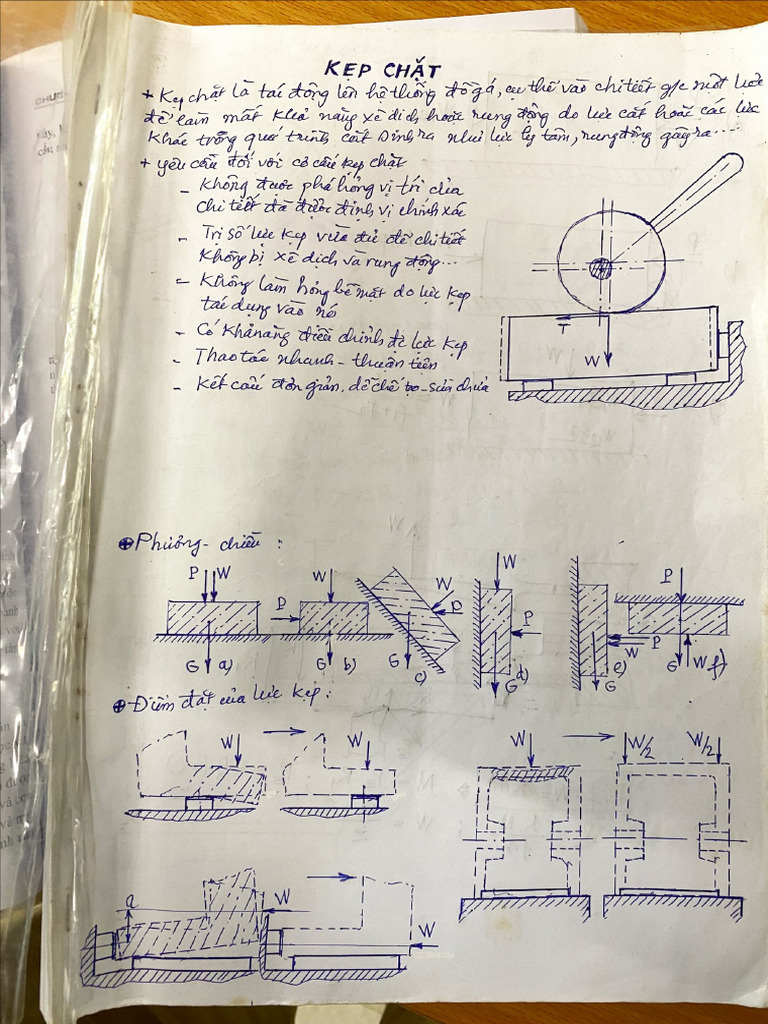 KẸP CHẶT
+ Kẹp chặt là tác động lên hệ thống đồ gá, cụ thể vào chi tiết gc một lực
để làm mất khả năng xê dịch hoặc rung động do lực cắt hoặc các lực
khác trong quá trình cắt sinh ra như lực ly tâm, rung động gây ra....
+ yêu cầu đối với cơ cấu kẹp chặt
- Không được phá hỏng vị trí của
chi tiết đã được định vị chính xác
- Trị số lực kẹp vừa đủ để chi tiết
không bị xê dịch và rung động...
- Không làm hỏng bề mặt do lực kẹp
tác dụng vào nó
- Có khả năng điều chỉnh đc lực kẹp
- Thao tác nhanh - thuận tiện
- Kết cấu đơn giản, dễ chế tạo - sửa chữa
T
W
⊕ Phương - chiều :
P W G a)
P W G b)
W P G c)
W P G d)
P W G e)
P G W f)
⊕ Điểm đặt của lực kẹp :
W W W W/2 W/2
a W W